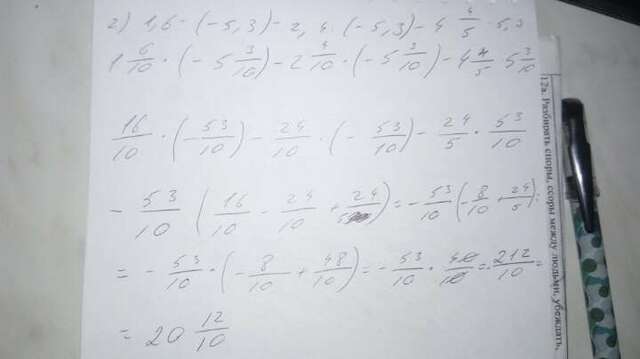 2) 1,6 · (-5,3) - 2,4 · (-5,3) - 4 4/5 · 5,3
1 6/10 · (-5 3/10) - 2 4/10 · (-5 3/10) - 4 4/5 · 5 3/10
16/10 · (-53/10) - 24/10 · (-53/10) - 24/5 · 53/10
- 53/10 (16/10 - 24/10 + 24/5) = - 53/10 (- 8/10 + 24/5) =
= - 53/10 · (- 8/10 + 48/10) = - 53/10 · 40/10 = - 212/10 =
= 20 12/10
12а. Разбирать споры, ссоры между людьми, убеждать,